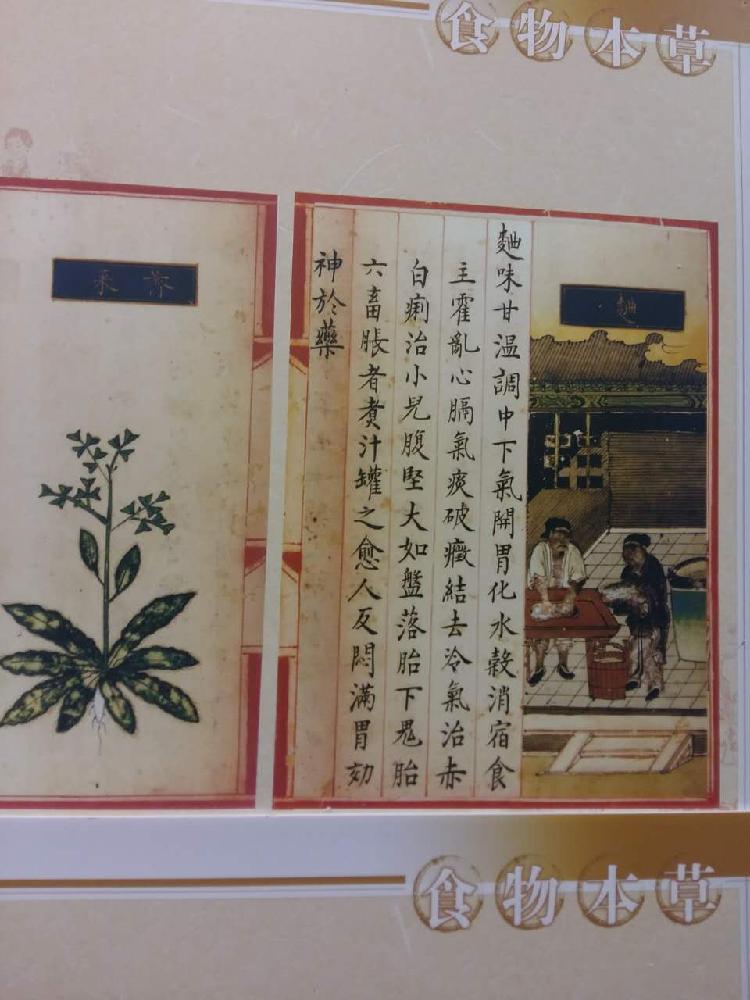 食物本草
麯
麯味甘溫調中下氣開胃化水穀消宿食
主霍亂心膈氣痰破癥結去冷氣治赤
白痢治小兒腹堅大如盤落胎下鬼胎
六畜脹者煮汁罐之愈人反悶滿胃効
神於藥
薺菜
食物本草